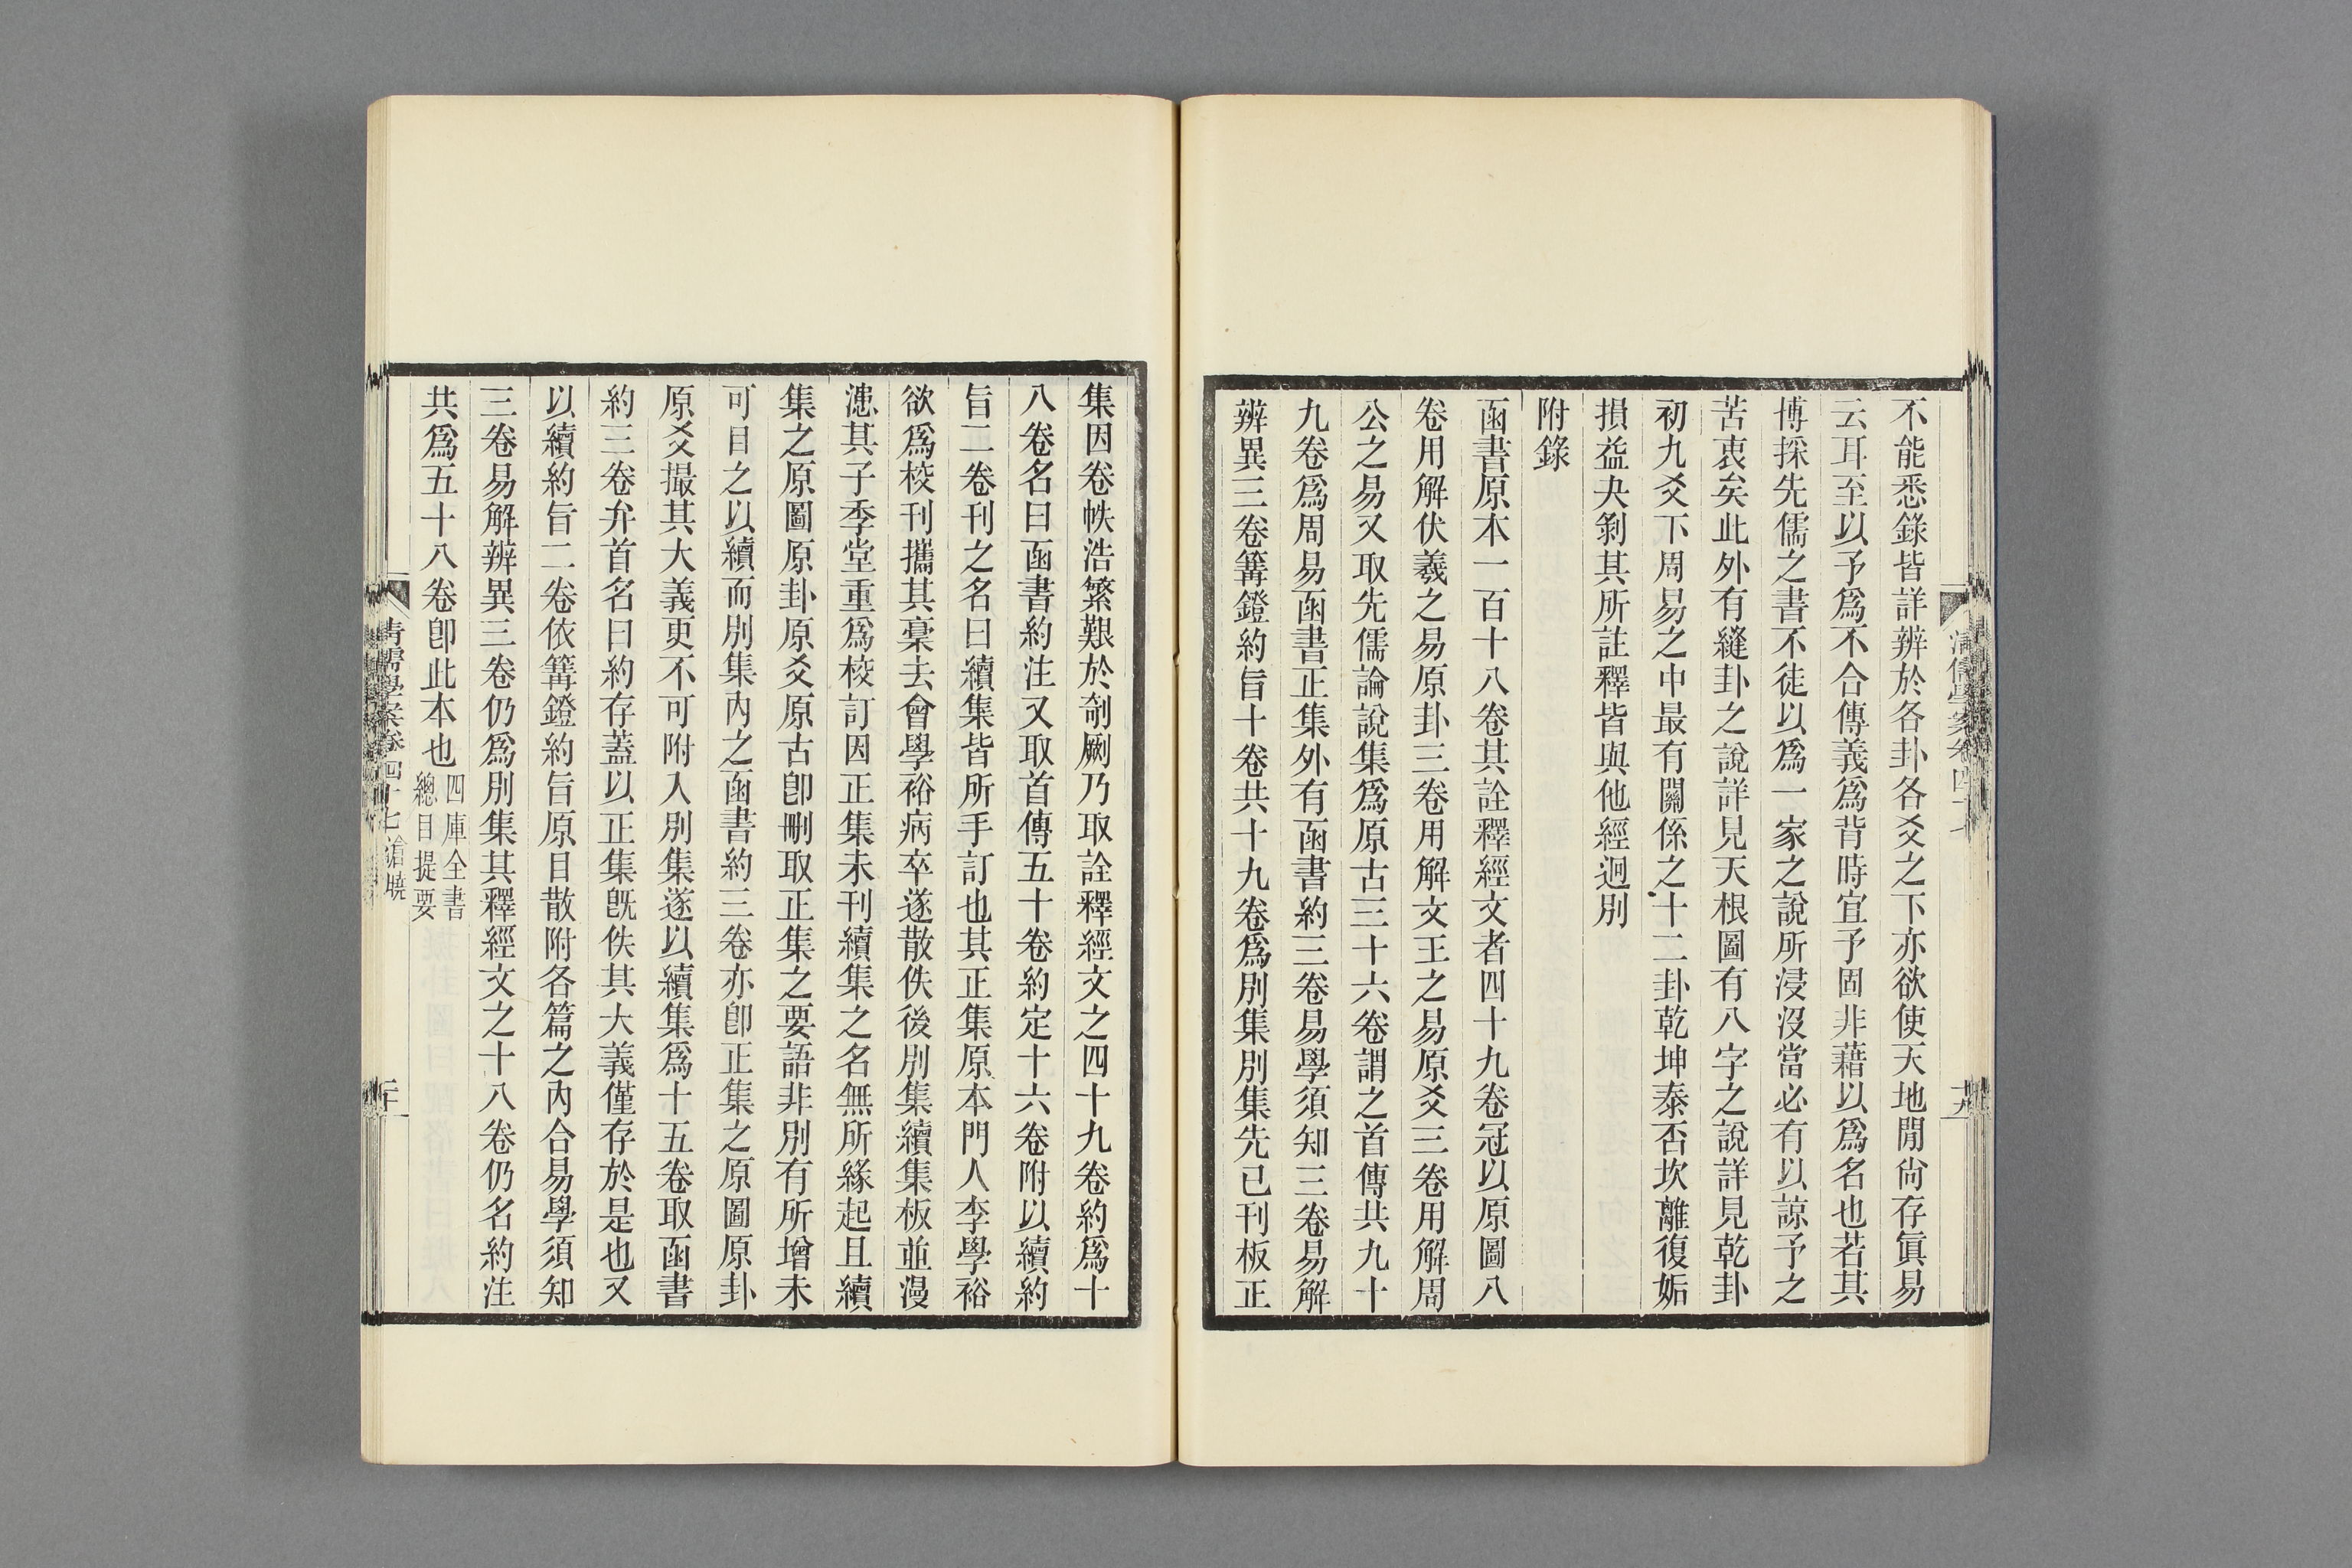 不能悉錄皆詳辨於各卦各爻之下亦欲使天地閒尙存眞易
云耳至以予爲不合傳義爲背時宜予固非藉以爲名也若其
博採先儒之書不徒以爲一家之說所浸沒當必有以諒予之
苦衷矣此外有縫卦之說詳見天根圖有八字之說詳見乾卦
初九爻下周易之中最有關係之十二卦乾坤泰否坎離復姤
損益夬剝其所註釋皆與他經迥別
附錄
函書原本一百十八卷其詮釋經文者四十九卷冠以原圖八
卷用解伏羲之易原卦三卷用解文王之易原爻三卷用解周
公之易又取先儒論說集爲原古三十六卷謂之首傳共九十
九卷爲周易函書正集外有函書約三卷易學須知三卷易解
辨異三卷篝鐙約旨十卷共十九卷爲別集別集先已刊板正
集因卷帙浩繁艱於剞劂乃取詮釋經文之四十九卷約爲十
八卷名曰函書約注又取首傳五十卷約定十六卷附以續約
旨二卷刊之名曰續集皆所手訂也其正集原本門人李學裕
欲爲校刊攜其稾去會學裕病卒遂散佚後別集續集板並漫
漶其子季堂重爲校訂因正集未刊續集之名無所緣起且續
集之原圖原卦原爻原古卽刪取正集之要語非別有所增未
可目之以續而別集內之函書約三卷亦卽正集之原圖原卦
原爻撮其大義更不可附入別集遂以續集爲十五卷取函書
約三卷弁首名曰約存蓋以正集旣佚其大義僅存於是也又
以續約旨二卷依篝鐙約旨原目散附各篇之內合易學須知
三卷易解辨異三卷仍爲別集其釋經文之十八卷仍名約注
共爲五十八卷卽此本也四庫全書
總目提要
清儒學案卷四十七滄曉